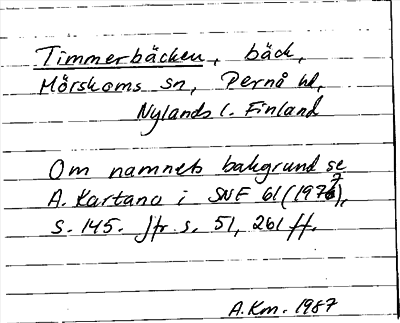 Timmerbäcken, bäck,
Mörskoms sn, Pernå hd,
Nylands l. Finland
Om namnets bakgrund se
A. Kartano i SNF 61 (1973),
s. 145. Jfr s. 51, 261 ff.
A.Km. 1987